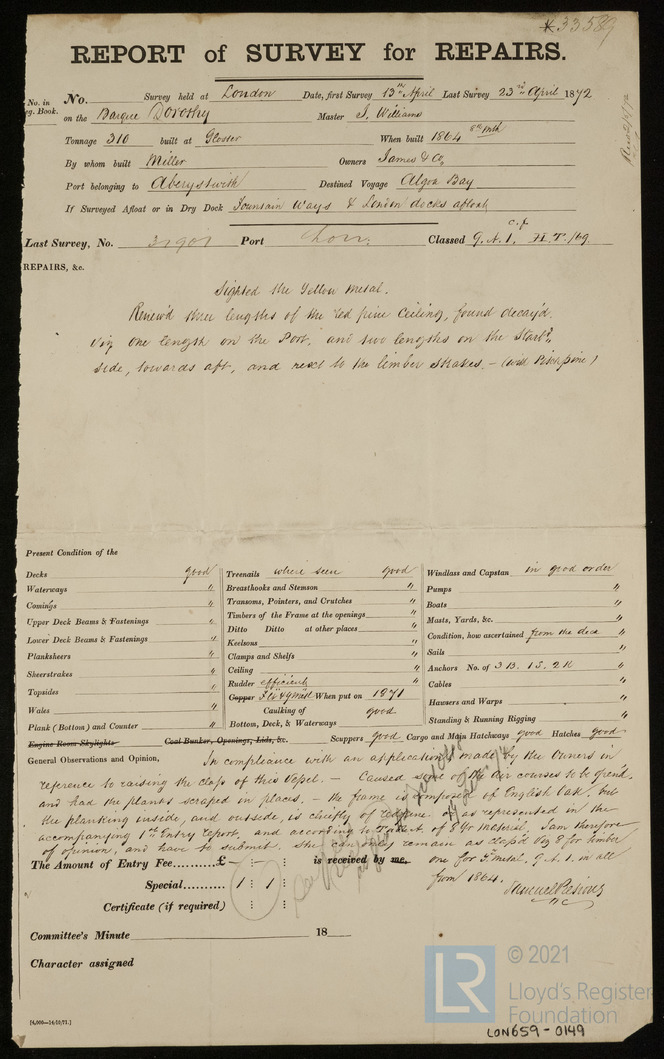 33589
REPORT of SURVEY for REPAIRS.
No. in Reg. Book.
No. Survey held at London Date, first Survey 13th April Last Survey 23rd April 1872
on the Barque Dorothy Master J. Williams
Tonnage 310 built at Gloster When built 1864 8th mth
By whom built Miller Owners James & Co
Port belonging to Aberystwith Destined Voyage Algoa Bay
If Surveyed Afloat or in Dry Dock Fountain Ways & London docks afloat
Last Survey, No. 31901 Port Lon. Classed 9. A. 1. c.f H.T. /69
REPAIRS, &c.
Sighted the Yellow Metal.
Renew'd three lengths of the red pine Ceiling, found decay'd.
Viz one length on the Port, and two lengths on the Starbd
side, towards aft, and next to the limber Strakes. - (with Pitch pine)
Present Condition of the
Decks good
Waterways "
Comings "
Upper Deck Beams & Fastenings "
Lower Deck Beams & Fastenings "
Planksheers "
Sheerstrakes "
Topsides "
Wales "
Plank (Bottom) and Counter "
Engine Room Skylights Coal Bunker, Openings, Lids, &c.
Treenails where seen good
Breasthooks and Stemson "
Transoms, Pointers, and Crutches "
Timbers of the Frame at the openings "
Ditto Ditto at other places "
Keelsons "
Clamps and Shelfs "
Ceiling "
Rudder efficient
Copper When put on 1871
Caulking of good
Bottom, Deck, & Waterways "
Windlass and Capstan in good order
Pumps "
Boats "
Masts, Yards, &c. "
Condition, how ascertained from the deck "
Sails "
Anchors No. of 3 B. 1 S. 2 K "
Cables "
Hawsers and Warps "
Standing & Running Rigging "
Scuppers good Cargo and Main Hatchways good Hatches good
General Observations and Opinion, In compliance with an application made by the Owners in
reference to raising the class of this Vessel. - Caused some of the air courses to be open'd,
and had the planks scraped in places, - the frame is composed of English Oak, but
the planking inside, and outside, is chiefly of red pine as represented in the
accompanying 1st Entry report, and according to Table A. of 8 Yr Material, I am therefore
of opinion, and have to submit. She can only remain as class'd Viz 8 for timber
one for Y. metal. 9. A. 1. in all
from 1864.
The Amount of Entry Fee..........£ - : - : is received by me,
Special.......... 1 : 1 :
Certificate (if required) :
Committee's Minute 18
Character assigned
[4,000—14/10/71.]
LR
© 2021
Lloyd's Register
Foundation
LON659-0149